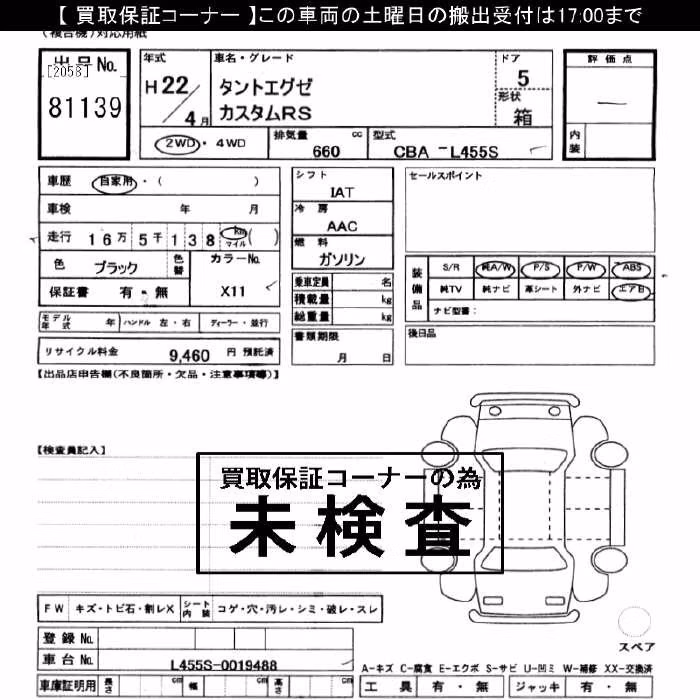 【 買取保証コーナー 】この車両の土曜日の搬出受付は17:00まで
(複合機)対応用紙
出品No.
[2058]
81139
年式
H 22/4月
車名・グレード
タントエグゼ
カスタムRS
ドア
5
形状
箱
評価点
—
内装
2WD・4WD
排気量 660 cc
型式 CBA - L455S
車歴 自家用・( )
車検 年 月
走行 16万5千138 km マイル ( )
色 ブラック
色替
カラーNo.
X11
保証書 有・無
シフト
IAT
冷房
AAC
燃料
ガソリン
乗車定員 名
積載量 kg
総重量 kg
書類期限
月 日
セールスポイント
装備品
S/R 純A/W P/S P/W ABS
純TV 純ナビ 革シート 外ナビ エアB
ナビ型番:
後日品
モデル年式 年 ハンドル 左・右 ディーラー・並行
リサイクル料金 9,460 円 預託済
【出品店申告欄(不良箇所・欠品・注意事項等)】
【検査員記入】
買取保証コーナーの為
未検査
FW キズ・トビ石・割レX シート内装 コゲ・穴・汚レ・シミ・破レ・スレ
登録No.
車台No. L455S-0019488
車庫証明用 長さ cm 幅 cm 高さ cm
スペア
A-キズ C-腐食 E-エクボ S-サビ U-凹ミ W-補修 XX-交換済
工具 有・無 ジャッキ 有・無